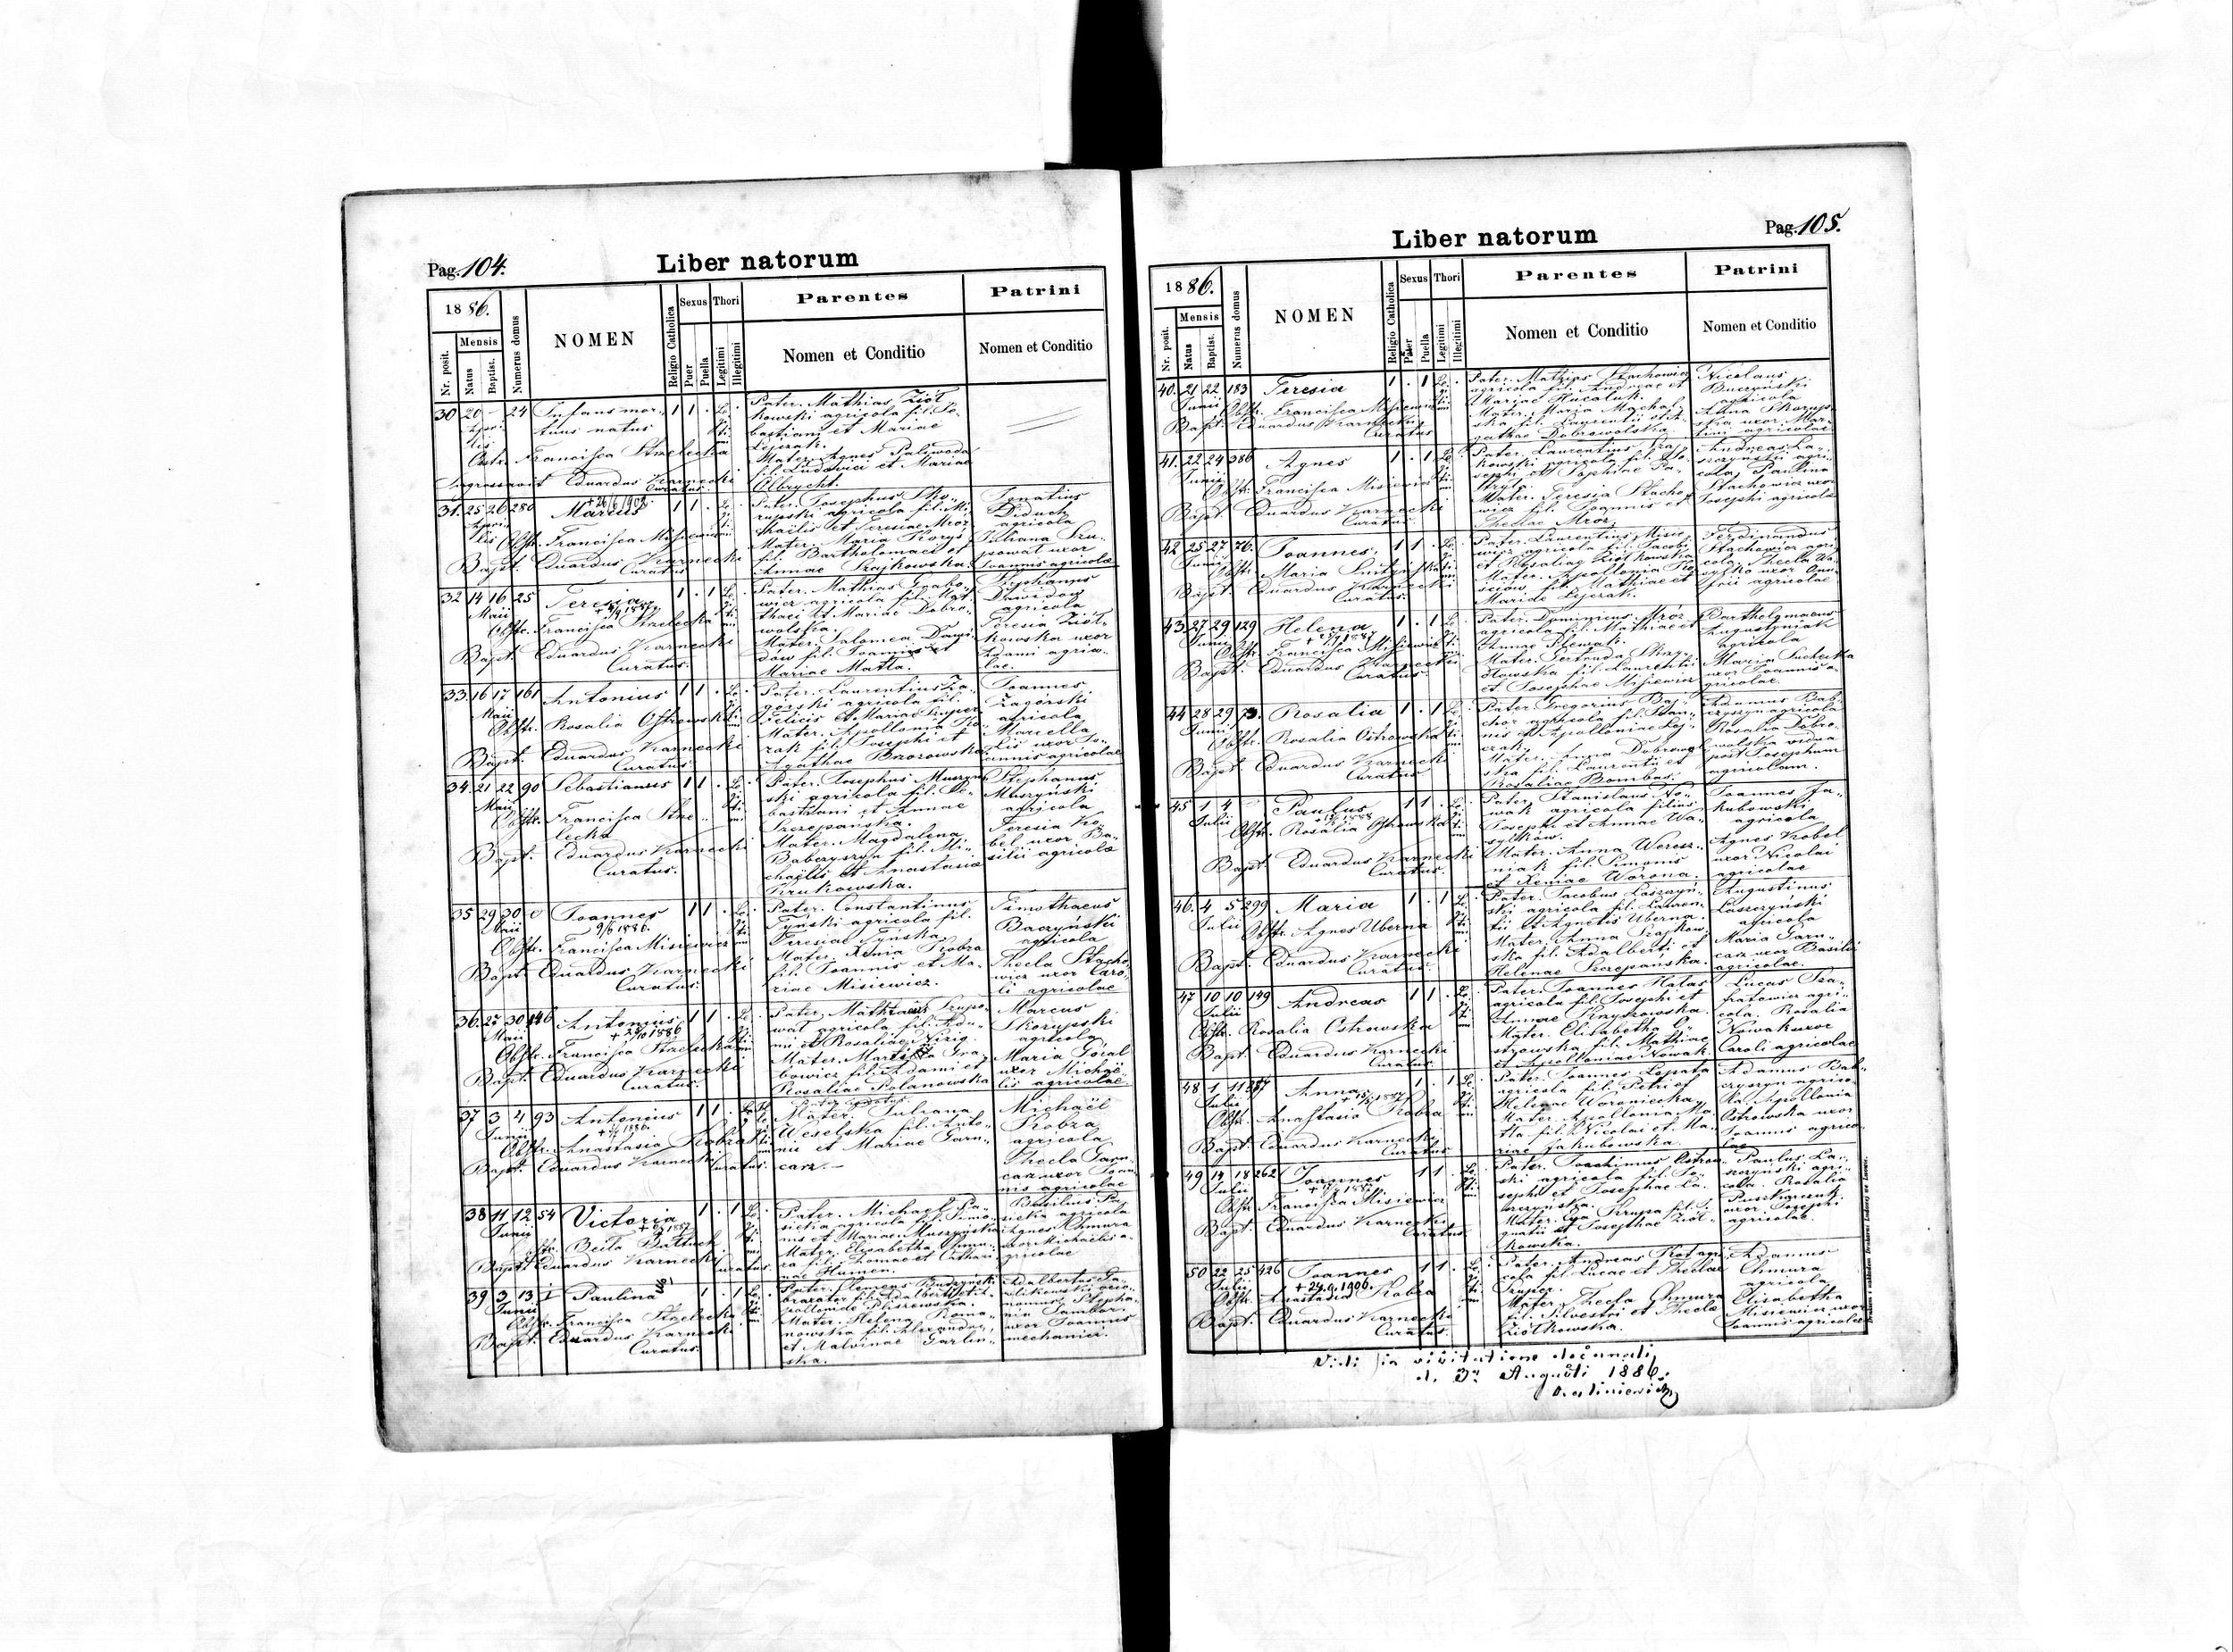 Pag. 104.
Liber natorum
1886.
Mensis
Nr. posit.
Natus
Baptist.
Numerus domus
NOMEN
Religio Catholica
Sexus
Puer
Puella
Thori
Legitimi
Illegitimi
Parentes
Nomen et Conditio
Patrini
Nomen et Conditio
30 20 - 24 Infans mor-
tuus natus
Obstr. Francisca Strzelecka
Ingrossavit Eduardus Karnecki
Curatus.
Pater. Mathias Ziół
kowski agricola fil. Se-
bastiani et Mariae
Lejczak.
Mater. Agnes Paliwoda
fil. Ludovici et Mariae
Olbrycht.
31. 25 26 280 Marcus
+26/6 1902.
Obstr. Francisca Misiewicz
Bapt. Eduardus Karnecki
Curatus
Pater. Josephus Sko-
rupski agricola fil. Mi-
chaëlis et Teresiae Mróz
Mater. Maria
fil. Bartholomaei et
Annae Szajkowska.
Ignatius
Diduch
agricola
Juliana Szu-
powat uxor
Joannis agricolae
32 14 16 25 Teresia
Maii
Obstr. Francisca Strzelecka
Bapt. Eduardus Karnecki
Curatus.
Pater. Mathias Grabo-
wicz agricola fil. Mat-
thaei et Mariae Dobro-
wolska.
Mater. Salomea Dawi-
dów fil. Joannis et
Mariae Matla.
Stephanus
Dawidow
agricola
Teresia Ziół-
kowska uxor
Adami agrico-
lae.
33. 16 17 161 Antonius
Maii
Obstr. Rosalia Ostrowska
Bapt. Eduardus Karnecki
Curatus.
Pater. Laurentius Za-
górski agricola fil.
Felicis et Mariae
Mater. Apollonia Ko-
zak fil. Josephi et
Agathae Brzozowska
Joannes
Zagórski
agricola
Marcella
Lis uxor Jo-
annis agricolae
34. 21 22 90 Sebastianus
Maii
Obstr. Francisca Strze-
lecka
Bapt. Eduardus Karnecki
Curatus.
Pater. Josephus Muszyń-
ski agricola fil. Se-
bastiani et Annae
Szczepańska.
Mater. Magdalena
Babczyszyn fil. Mi-
chaëlis et Anastasiae
Krukowska.
Stephanus
Muszyński
agricola
Teresia Ko-
bel uxor Ba-
silii agricolae
35 29 30 Joannes
Maii 9/6 1886.
Obstr. Francisca Misiewicz
Bapt. Eduardus Karnecki
Curatus.
Pater. Constantinus
Tyński agricola fil.
Teresiae Tyńska
Mater. Xenia Kobza
fil. Joannis et Ma-
riae Misiewicz.
Timothaeus
Baczyński
agricola
Thecla Stacho-
wicz uxor Caro-
li agricolae
36. 27 30 146 Antonius
Maii
Obstr. Francisca Strzelecka
Bapt. Eduardus Karnecki
Curatus.
Pater. Mathiass Szupo-
wat agricola fil. Ada-
mi et Rosaliae
bowicz fil. Adami et
Rosaliae Polanowska
Marcus
Skorupski
agricola
Maria Góral
uxor Michaë-
lis agricolae
37 3 4 93 Antonius
Junii
Obstr. Anastasia Kobza
Bapt. Eduardus Karnecki Curatus.
Pater ignotus.
Mater. Juliana
Weselska fil. Anto-
nii et Mariae Garn-
carz.
Michaël
Kobza
agricola
Thecla Garn-
carz uxor Joan-
nis agricolae
38 11 12 54 Victoria
Junii
Obstr. Beila
Bapt. Eduardus Karnecki Curatus.
Pater. Michael Pa-
siéka agricola fil. Simo-
nis et Mariae Muszyńska
Mater. Elisabetha Chmu-
ra fil. Thomae et Cathari-
nae Humen.
Basilius Pa-
sieka agricola
Agnes Chmura
uxor Michaëlis a-
gricolae
39 3 13 1 Paulina
Junii
Obstr. Francisca Strzelecka
Bapt. Eduardus Karnecki
Curatus.
Pater. Clemens Budzyński
Mater. Helena Roma-
nowska fil. Alexandri
et Malvinae Garlin-
ska.
Adalbertus
uxor Joannis
mechanici.
Pag. 105.
Liber natorum
1886.
Mensis
Nr. posit.
Natus
Baptist.
Numerus domus
NOMEN
Religio Catholica
Sexus
Puer
Puella
Thori
Legitimi
Illegitimi
Parentes
Nomen et Conditio
Patrini
Nomen et Conditio
40. 21 22 183 Teresia
Junii
Obstr. Francisca Misiewicz
Bapt. Eduardus Karnecki
Curatus
Pater. Mathias Stachowicz
agricola fil. Andreae et
Mariae Hucaluk.
Mater. Maria Mychal-
ska fil. Laurentii et A-
gathae Dobrowolska.
Nicolaus
Buczyński
agricola
Anna Skorup-
ska uxor Mar-
tini agricolae
41. 22 24 386 Agnes
Junii
Obstr. Francisca Misiewicz
Bapt. Eduardus Karnecki
Curatus.
Pater. Laurentius Szaj-
kowski agricola fil. Jo-
sephi et Sophiae
Mater. Teresia Stacho-
wicz fil. Joannis et
Theclae Mróz.
Andreas La-
szczyński agri-
cola, Paulina
Stachowicz uxor
Josephi agricolae
42 25 27 76. Joannes
Junii
Obstr. Maria
Bapt. Eduardus Karnecki
Curatus.
Pater. Laurentius Misie-
wicz agricola fil. Jacobi
et Rosaliae Ziółkowska
Mater. Apollonia Ko-
ściów fil. Mathiae et
Mariae Lejczak.
Ferdinandus
Stachowicz agri-
cola, Thecla Wa-
syłko uxor Onu-
frii agricolae
43 27 29 129 Helena
Junii
Obstr. Francisca Misiewicz
Bapt. Eduardus Karnecki
Curatus.
Pater. Dominicus Mróz
agricola fil. Mathiae et
Annae
Mater. Gertruda
fil. Laurentii
et Josephae Misiewicz
Bartholomaeus
Augustyniak
agricola
Maria Suchecka
uxor Joannis a-
gricolae
44 28 29 73. Rosalia
Junii
Obstr. Rosalia Ostrowska
Bapt. Eduardus Karnecki
Curatus.
Pater. Gregorius Baj-
chor agricola fil. Joan-
nis et Apolloniae Lej-
czak.
Mater. Anna Dobrowol-
ska fil. Laurentii et
Rosaliae Bombas.
Adamus Bab-
czyszyn agricola
Rosalia Dobro-
wolska vidua
post Josephum
agricolam.
45 1 4 Paulus
Julii
Obstr. Rosalia Ostrowska
Bapt. Eduardus Karnecki
Curatus.
Pater. Stanislaus No-
wak agricola filius
Josephi et Annae Wa-
sylków.
Mater. Anna Weresz-
niak fil. Simonis
et Xeniae Worona.
Joannes Ja-
kubowski
agricola
Agnes Kobel
uxor Nicolai
agricolae
46. 4 5 299 Maria
Julii
Obstr. Agnes Uberna
Bapt. Eduardus Karnecki
Curatus.
Pater. Jacobus Laszczyń-
ski agricola fil. Lauren-
tii et Agnetis Uberna.
Mater. Anna Szajkow-
ska fil. Adalberti et
Helenae Szczepańska.
Augustinus
Laszczyński
agricola
Maria Garn-
carz uxor Basilii
agricolae.
47 10 10 149 Andreas
Julii
Obstr. Rosalia Ostrowska
Bapt. Eduardus Karnecki
Curatus.
Pater. Joannes Hałas
agricola fil. Josephi et
Annae Krzyżowska.
Mater. Elisabetha O-
strowska fil. Mathiae
et Apolloniae Nowak.
Lucas Sza-
fratowicz agri-
cola. Rosalia
Nowak uxor
Caroli agricolae
48 1 11 Anna
Julii
Obstr. Anastasia Kobza
Bapt. Eduardus Karnecki
Curatus
Pater. Joannes Łopata
agricola fil. Petri et
Helenae Woroniecka
Mater. Apollonia Ma-
tla fil. Nicolai et Ma-
riae Jakubowska.
Adamus Bab-
czyszyn agrico-
la. Apollonia
Ostrowska uxor
Joannis agrico-
lae
49 14 18 262 Joannes
Julii
Obstr. Francisca Misiewicz
Bapt. Eduardus Karnecki
Curatus.
Pater. Joachimus Ostrow-
ski agricola fil. Jo-
sephi et Josephae La-
szczyńska.
Mater. Eva Krupa fil. I-
gnatii et Josephae Ziół-
kowska.
Paulus La-
szczyński agri-
cola. Rosalia
uxor Josephi
agricolae.
50 22 25 426 Joannes
Julii + 24.9.1906.
Obstr. Anastasia Kobza
Bapt. Eduardus Karnecki
Curatus.
Pater. Andreas Kot agri-
cola fil. Lucae et Theclae
Mater. Thecla Chmura
fil. Silvestri et Theclae
Ziółkowska.
Adamus
Chmura
agricola
Elisabetha
Misiewicz uxor
Joannis agricolae
Vidi in visitatione decanali
d. 3a Augusti 1886.